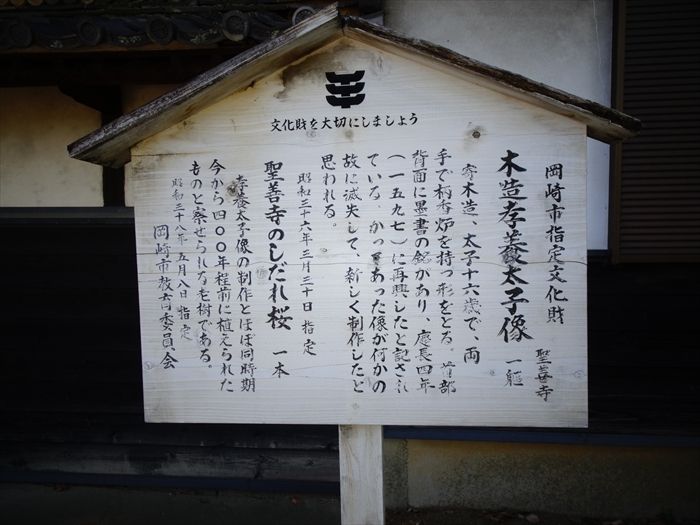 文化財を大切にしましょう
岡崎市指定文化財
聖善寺
木造孝養太子像 一軀
寄木造、太子十六歳で、両
手で柄香炉を持つ形をとる。首部
背面に墨書の銘があり、慶長四年
(一五九七)に再興したと記され
ている。かつてあった像が何かの
故に滅失して、新しく制作したと
思われる。
昭和三十六年三月三十日 指定
聖善寺のしだれ桜 一本
孝養太子像の制作とほぼ同時期
今から四〇〇年程前に植えられた
ものと察せられる老樹である。
昭和三十八年五月八日 指定
岡崎市教育委員会